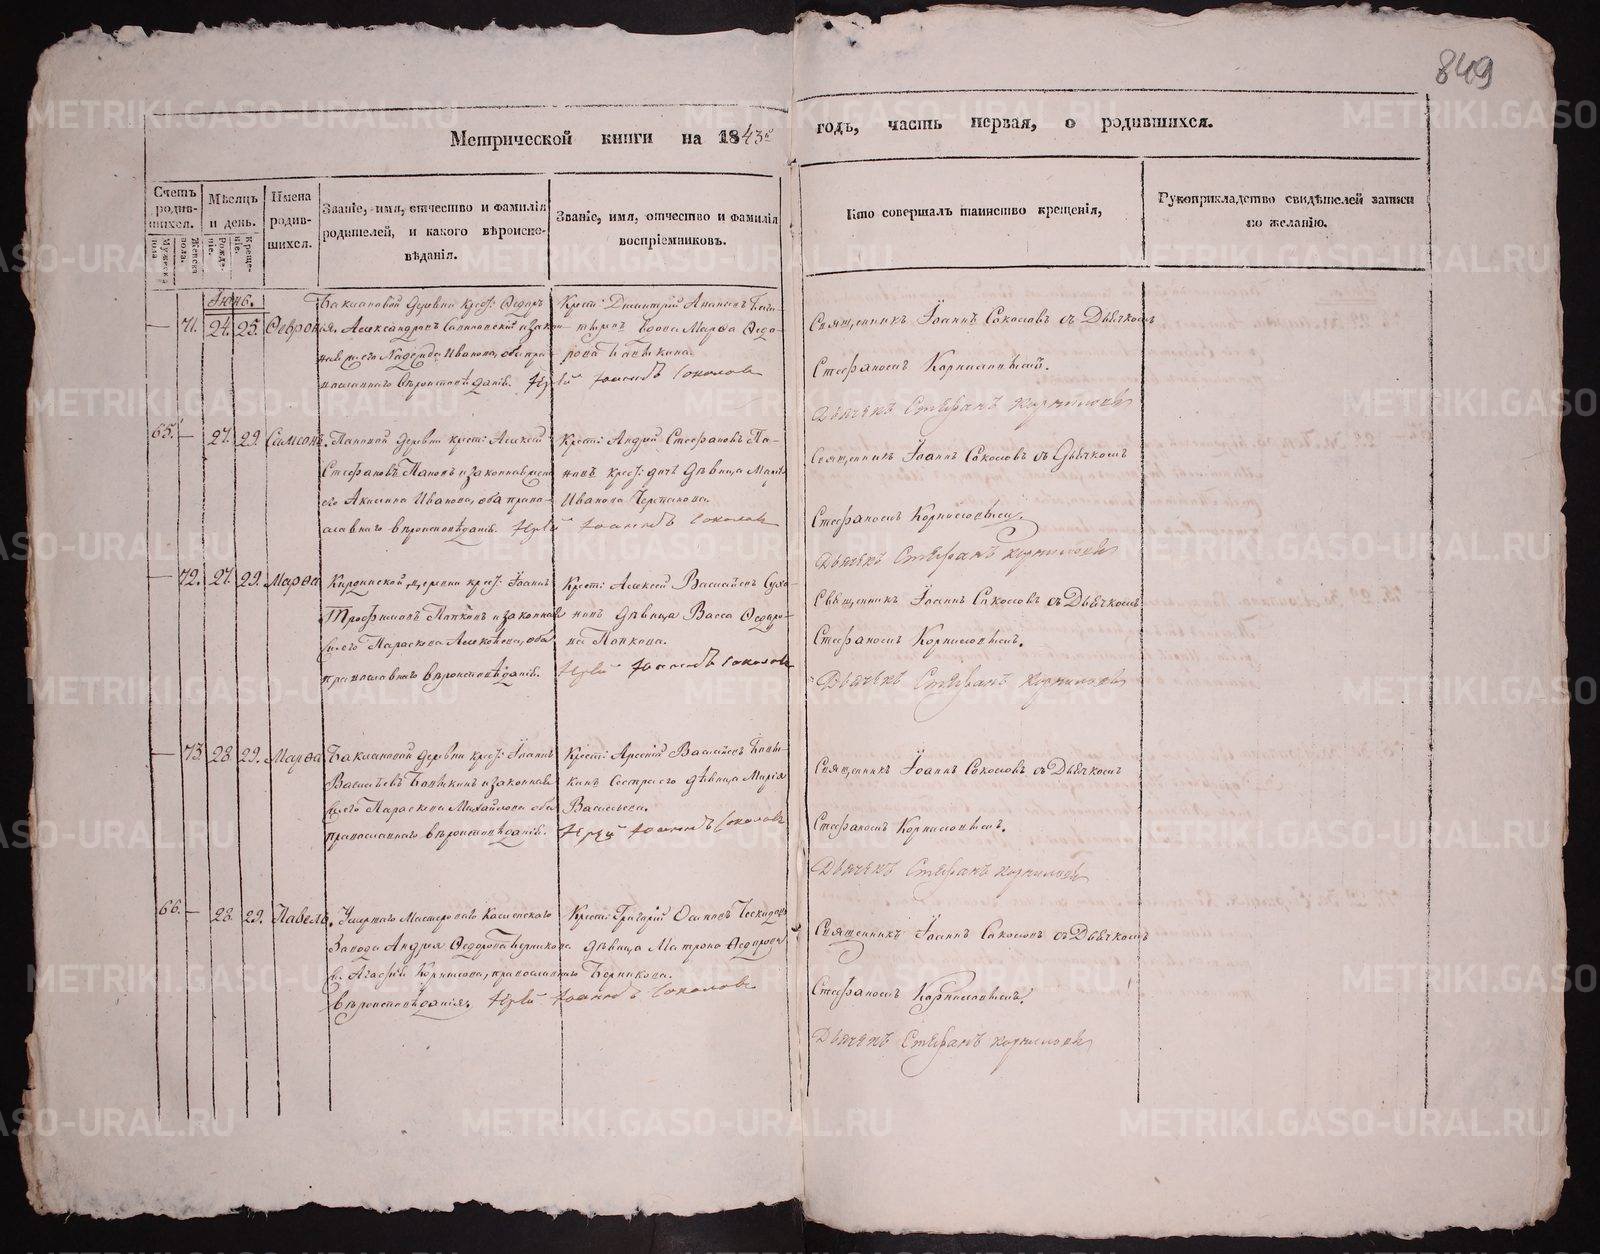 849
Метрической книги на 1843й годъ, часть первая, о родившихся.
Счетъ родив- шихся.
Мужеска пола
Женска пола.
Мѣсяцъ и день.
Рожде- нiе.
Креще- нiе.
Имена родив- шихся.
Званiе, имя, отчество и фамилiя
родителей, и какого вѣроиспо-
вѣданiя.
Званiе, имя, отчество и фамилiя
воспрiемниковъ.
Кто совершалъ таинство крещенiя,
Рукоприкладство свидѣтелей записи
по желанiю.
Iюнь.
— 71. 24. 25. Феврония.
Баклановой деревни крест: Ѳедоръ
Александровъ и закон-
ная его Надежда Иванова, оба пра-
вославнаго вѣроисповѣданiя. Iерей Iоаннъ Соколовъ
Крест: Димитрiй
Марѳа Ѳедо-
рова
Священникъ Iоаннъ Соколовъ съ Дьячкомъ
Стефаномъ Корниловымъ.
Дьячекъ Стефанъ Корниловъ
65. — 27. 29. Самсонъ.
Пановой деревни крест: Алексей
Стефановъ Пановъ и законная жена
его Акилина Иванова, оба право-
славнаго вѣроисповѣданiя. Iерей Iоаннъ Соколовъ
Крест: Андрей Стефановъ Па-
новъ крест: дѣвица
Иванова
Священникъ Iоаннъ Соколовъ съ Дьячкомъ
Стефаномъ Корниловымъ.
Дьячекъ Стефанъ Корниловъ
— 72. 27. 29. Марѳа
деревни крест: Iоаннъ
Трофимовъ Папковъ и законная
его Параскева Алексѣева, оба
православнаго вѣроисповѣданiя.
Крест: Алексей Васильевъ Сухо-
дѣвица Васса Ѳедоро-
ва Папкова.
Iерей Iоаннъ Соколовъ
Священникъ Iоаннъ Соколовъ съ Дьячкомъ
Стефаномъ Корниловымъ.
Дьячекъ Стефанъ Корниловъ
— 73. 28. 29. Марѳа
Баклановой деревни крест: Iоаннъ
Васильевъ и законная
его Параскева Михайлова оба
православнаго вѣроисповѣданiя.
Крест: Арсенiй Васильевъ
сестра его дѣвица Марiя
Васильева.
Iерей Iоаннъ Соколовъ
Священникъ Iоаннъ Соколовъ съ Дьячкомъ
Стефаномъ Корниловымъ.
Дьячекъ Стефанъ Корниловъ
66. — 28. 29. Павелъ.
Умершаго Мастероваго Каменскаго
Завода Андрея Ѳедорова Берникова
Агафiя Корнилова, православнаго
вѣроисповѣданiя. Iерей Iоаннъ Соколовъ
Крест: Григорiй Осиповъ
дѣвица Матрона Ѳедорова
Берникова.
Священникъ Iоаннъ Соколовъ съ Дьячкомъ
Стефаномъ Корниловымъ.
Дьячекъ Стефанъ Корниловъ